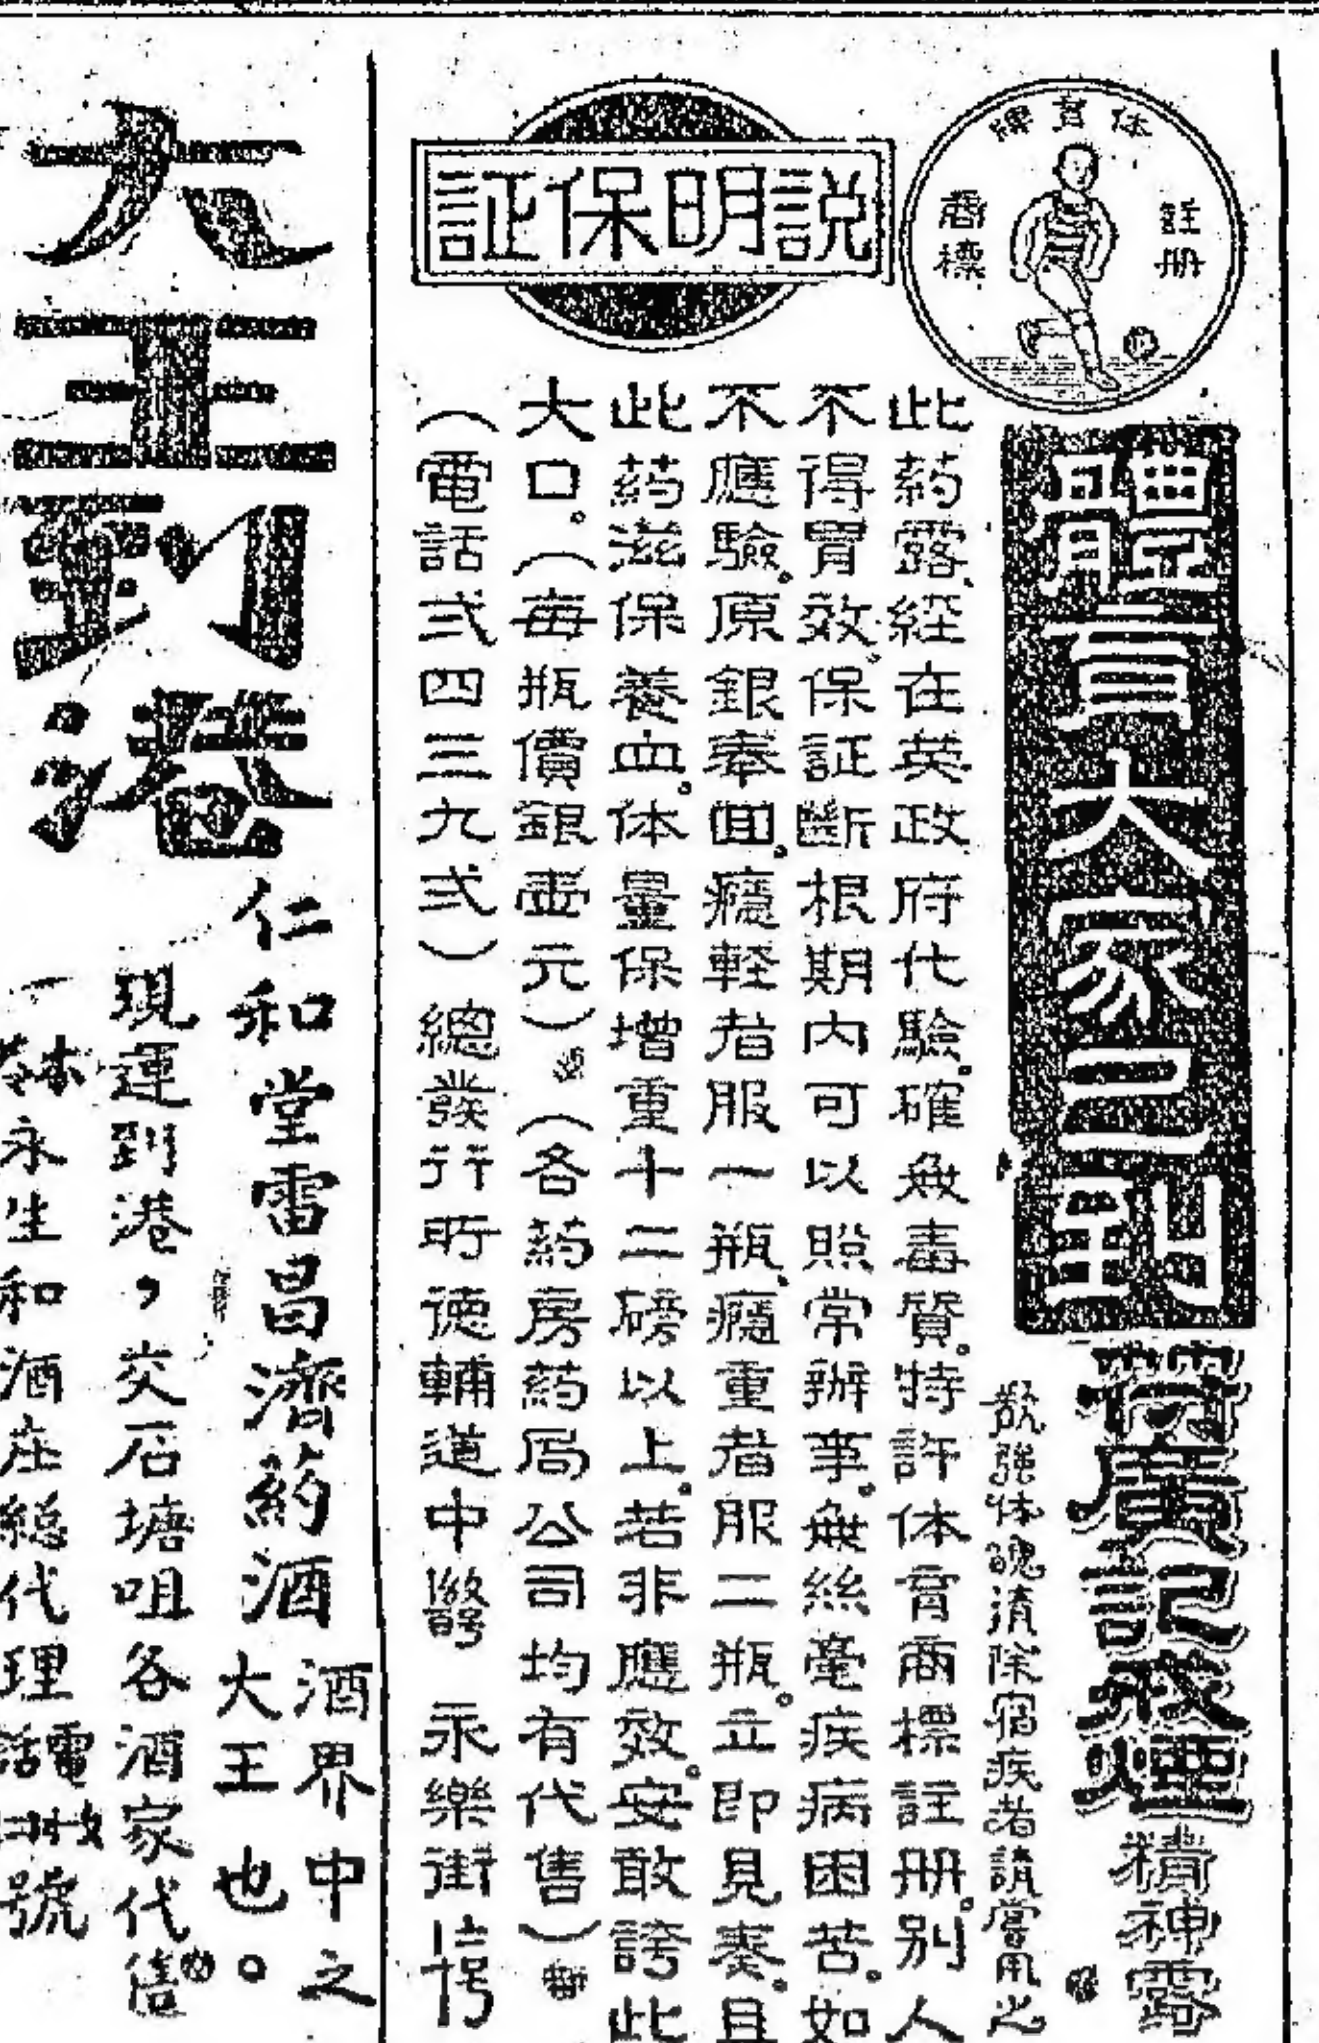 体育牌
註册
商標
說明保証
體育大家已到
符廣記戒煙
精神露
欲強体魄清除宿疾者請嘗用之
此葯露、經在英政府代驗。確無毒質。特許体育商標註册。别人
不得冒效。保証斷根期內可以照常辦事。無絲毫疾病困苦。如
不應驗。原銀奉回。癮輕者服一瓶、癮重者服二瓶。立即見奏。且
此葯滋保養血。体量保增重十二磅以上。若非應效。安敢誇此
大口。（每瓶價銀壹元）（各葯房葯局公司均有代售）
（電話弍四三九弍）總發行所德輔道中 永樂街
大王到港
仁和堂雷昌濟葯酒
酒界中之
大王也。
現運到港，交石塘咀各酒家代售
永生和酒庄総代理
電話 號